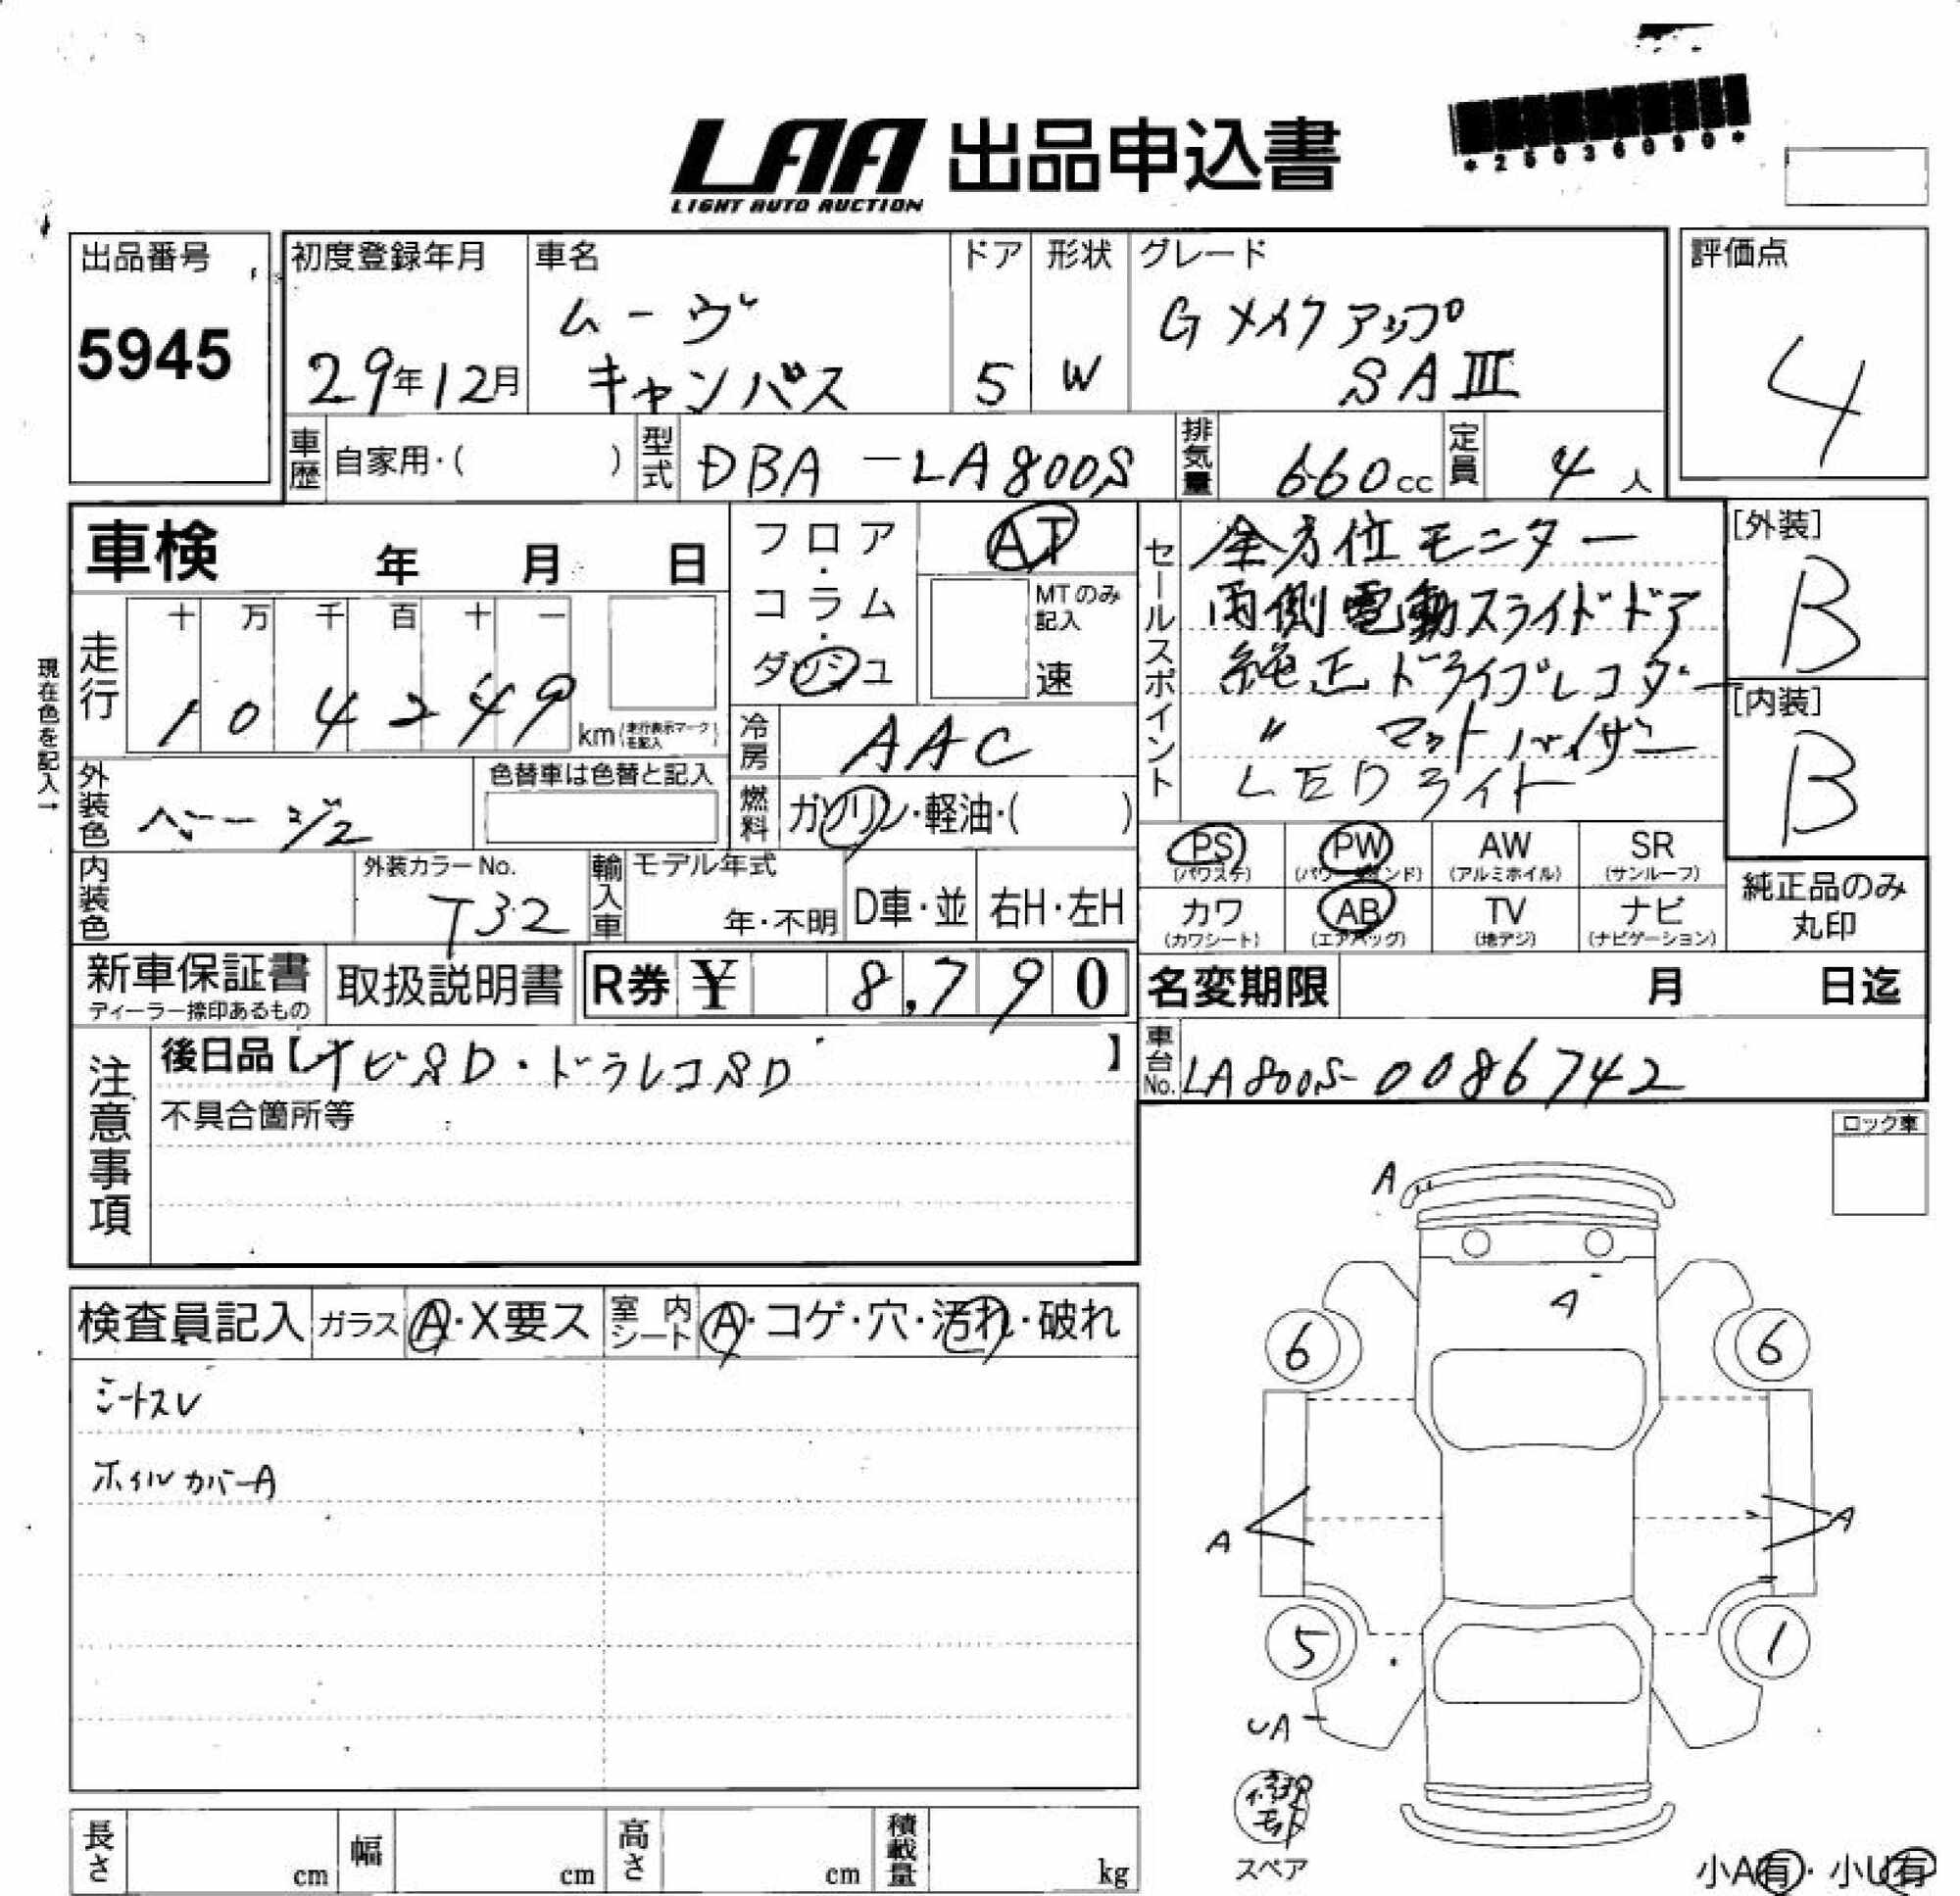 LAA 出品申込書
LIGHT AUTO AUCTION
*25036090*
出品番号
5945
初度登録年月
29年12月
車名
ムーヴ
キャンバス
ドア
5
形状
W
グレード
Gメイクアップ
SAⅢ
評価点
4
車歴 自家用・( )
型式 DBA-LA800S
排気量 660cc
定員 4人
車検 年 月 日
フロア・コラム・ダッシュ
AT
MTのみ記入
速
セールスポイント
全方位モニター
両側電動スライドドア
純正ドライブレコーダー
〃 マットバイザー
LEDライト
[外装]
B
[内装]
B
現在色を記入→
走行
十 万 千 百 十 一
1 0 4 2 4 9 km(走行表示マークを記入)
冷房 AAC
外装色 ベージュ
色替車は色替と記入
燃料 ガソリン・軽油・( )
PS (パワステ)
PW (パワーウィンド)
AW (アルミホイル)
SR (サンルーフ)
カワ (カワシート)
AB (エアバッグ)
TV (地デジ)
ナビ (ナビゲーション)
純正品のみ丸印
内装色
外装カラーNo.
T32
輸入車
モデル年式
年・不明
D車・並
右H・左H
新車保証書
ディーラー捺印あるもの
取扱説明書
R券 ¥ 8,790
名変期限 月 日迄
注意事項
後日品【ナビSD・ドラレコSD】
不具合箇所等
車台No. LA800S-0086742
ロック車
検査員記入
ガラス A・X要ス
室内シート A・コゲ・穴・汚れ・破れ
シートスレ
ホイルカバーA
A
A
6
6
A
A
5
1
UA
スペア
小A有・小U有
長さ cm
幅 cm
高さ cm
積載量 kg